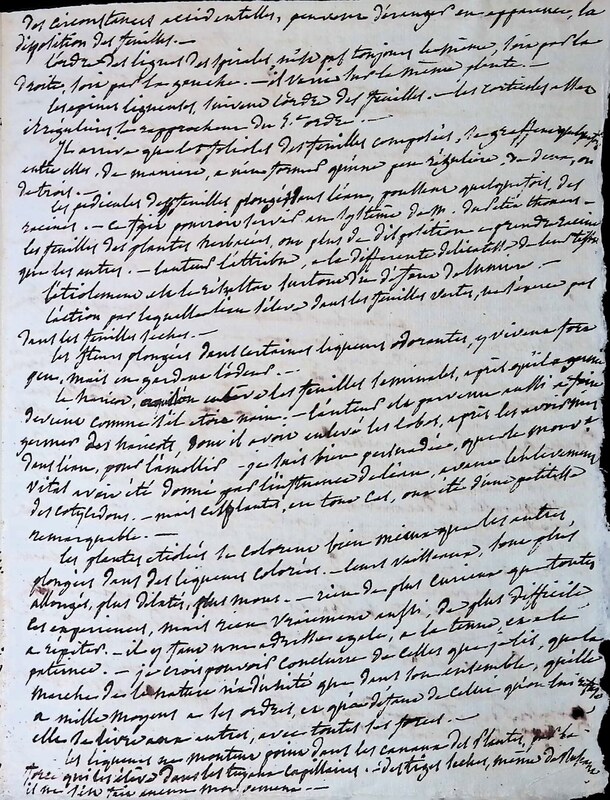 des circonstances accidentelles, peuvent déranger en apparence, la
disposition des feuilles. —
L'ordre des lignes des spirales n'est pas toujours le même, soit par la
droite, soit par la gauche. — il varie sur la même plante. —
les épines ligneuses, suivent l'ordre des feuilles. — les corticales assez
irregulieres se rapprochent du 5e ordre. —
Il arrive que les folioles des feuilles composées, se greffent
entre elles, de maniere, a n'en former qu'une peu réguliere, de deux, ou
de trois. —
les pédicules des feuilles plongés dans l'eau, poussent quelquefois, des
racines. — ce fait pourroit servir au systême de M. du Petit thouars —
les feuilles des plantes herbacées, ont plus de disposition a prendre racine
que les autres. — l'auteur l'attribue, a la differente délicatesse de leur tissu
l'étiolement est le résultat surtout du défaut de lumiere. —
l'action par laquelle l'eau s'éleve dans les feuilles vertes, ne s'exerce pas
dans les feuilles seches. —
les fleurs plongées dans certaines liqueurs odorantes, y vivent fort
peu, mais en gardent l'odeur. —
le haricot, enleve les feuilles seminales, après qu'il a germé
devient comme s'il etoit nain. — l'auteur est parvenu aussi a faire
germer des haricots, dont il avoit enlevé les lobes, après les avoir mis
dans l'eau, pour l'amollir — je suis bien persuadée, que le mouv.t
vital avoit été donné par l'influence de l'eau, avant l'enlevement
des cotyledons. — mais ces plantes, en tout cas, ont été d'une petitesse
remarquable. —
les plantes etiolées se colorent bien mieux que les autres,
plongées dans des liqueurs colorées. — leurs vaisseaux, sont plus
allongés, plus dilatés, plus mous. — rien de plus curieux que toutes
ces experiences, mais rien vraiment aussi, de plus difficile
a répéter. — il y faut une adresse egale, a la tenue, et a la
patience. — je crois pouvoir conclurre de celles que je lis, que la
marche de la nature n'a d'unité que dans son ensemble, qu'elle
a mille moyens a ses ordres, et qu'a défaut de celui qu'on lui
elle se livre aux autres, avec toutes ses forces. —
les liqueurs ne montent point dans les canaux des plantes, par la
force qui les éleve dans les tuyaux capillaires. — des tiges seches, meme
il ne s'en fait aucun mouvement. —